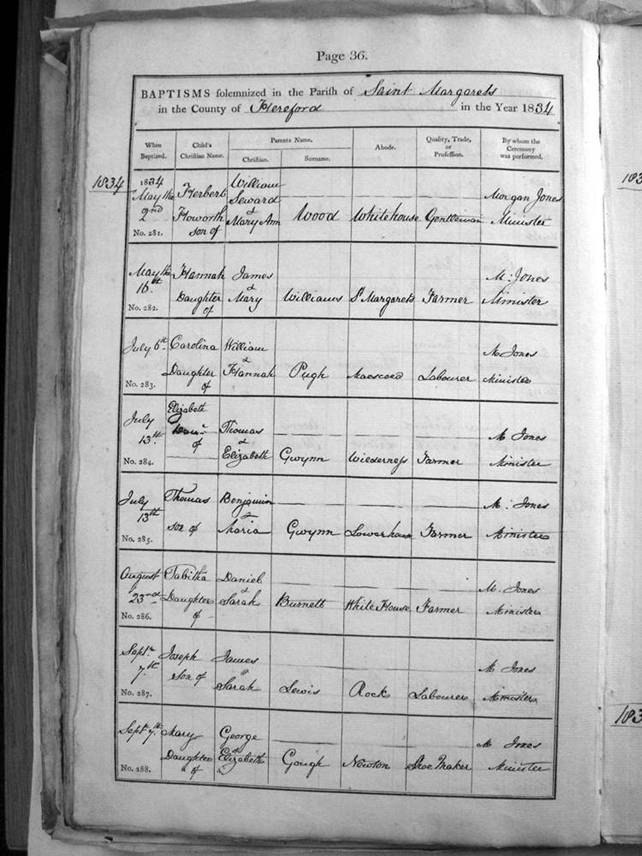 Page 36.
BAPTISMS solemnized in the Parish of Saint Margarets
in the County of Hereford in the Year 1834
When Baptized.
Child's Christian Name.
Parents Name.
Christian.
Surname.
Abode.
Quality, Trade, or Profession.
By whom the Ceremony was performed.
1834
1834 May the 2nd No. 281.
Herbert Howorth son of
William Seward & Mary Ann
Wood
Whitehouse
Gentleman
Morgan Jones Minister
May the 16th No. 282.
Hannah Daughter of
James & Mary
Williams
St Margarets
Farmer
M. Jones Minister
July 6th No. 283.
Carolina Daughter of
William & Hannah
Pugh
Maescoed
Labourer
M Jones Minister
July 13th No. 284.
Elizabeth of
Thomas & Elizabeth
Gwynn
Wilderness
Farmer
M Jones Minister
July 13th No. 285.
Thomas son of
Benjamin & Maria
Gwynn
Farmer
M. Jones Minister
August 23rd No. 286.
Tabitha Daughter of
Daniel & Sarah
Burnett
White House
Farmer
M. Jones Minister
Sept. 7th No. 287.
Joseph son of
James & Sarah
Lewis
Rock
Labourer
M Jones Minister
Sept. 7th No. 288.
Mary Daughter of
George & Elizabeth
Gough
Newton
Shoe Maker
M Jones Minister
183
183